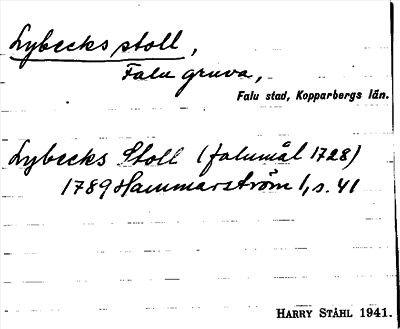 Lybecks stoll,
Falu gruva,
Falu stad, Kopparbergs län.
Lybecks Stoll (falumål 1728)
1789 Hammarström 1, s. 41
HARRY STÅHL 1941.